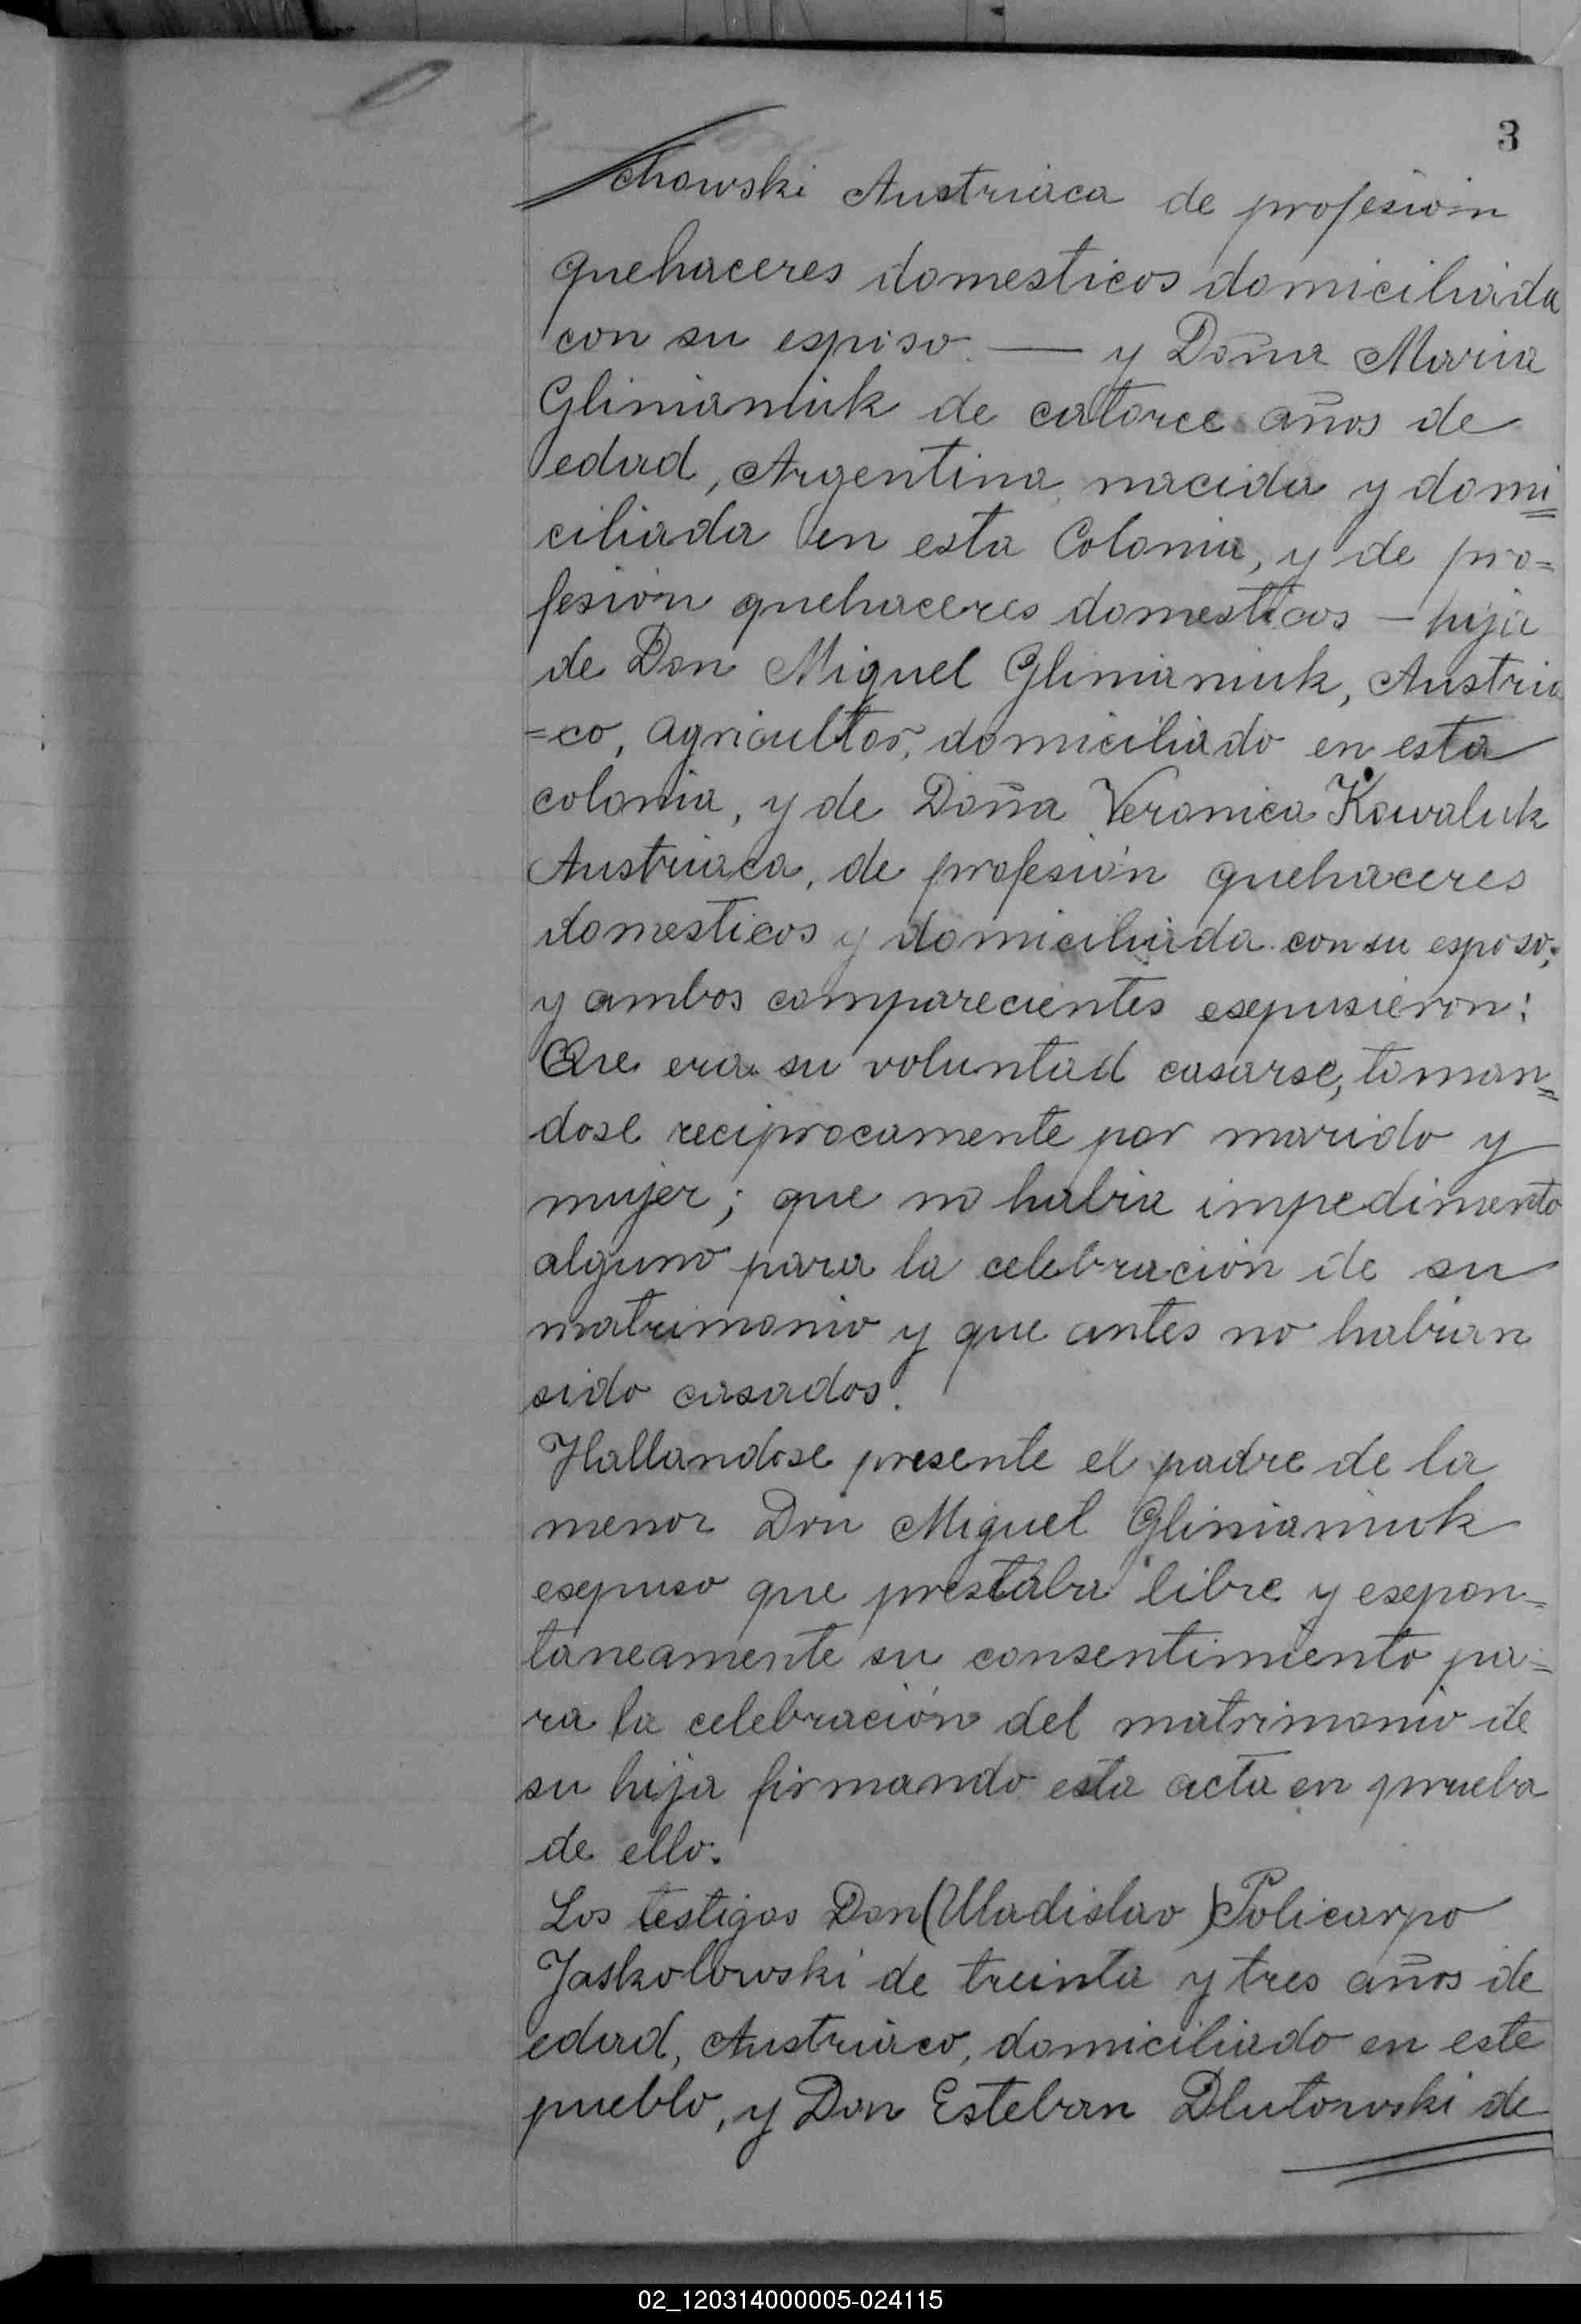 3
chowski Austriaca de profesión
quehaceres domesticos domiciliada
con su esposo. — y Doña Maria
Glinianiuk de catorce años de
edad, Argentina, nacida y domi=
ciliada en esta Colonia, y de pro=
fesión quehaceres domesticos — hija
de Don Miguel Glinianiuk, Austria
=co, agricultor, domiciliado en esta
colonia, y de Doña Veronica Kowaluk
Austriaca, de profesión quehaceres
domesticos y domiciliada con su esposo;
y ambos comparecientes esepusieron:
Que era su voluntad casarse, toman=
dose reciprocamente por marido y
mujer; que no habia impedimento
alguno para la celebración de su
matrimonio y que antes no habian
sido casados.
Hallandose presente el padre de la
menor Don Miguel Glinianiuk
esepuso que prestaba libre y esepon=
taneamente su consentimiento pa=
ra la celebración del matrimonio de
su hija firmando esta acta en prueba
de ello.
Los testigos Don (Uladislao) Policarpo
Jaskolowski de treinta y tres años de
edad, Austriaco, domiciliado en este
pueblo, y Don Esteban Dlutowski de
02_120314000005-024115